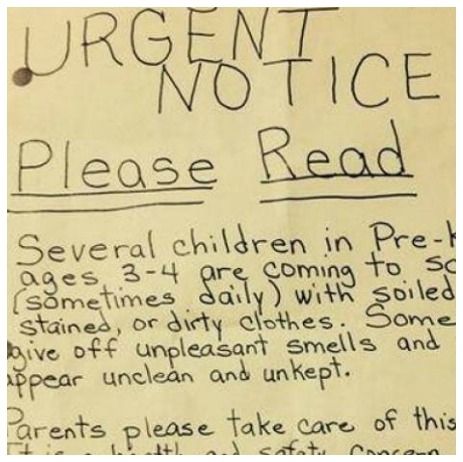 URGENT
NOTICE
Please Read
Several children in Pre-K
ages 3-4 are coming to sc
(sometimes daily) with soiled
stained, or dirty clothes. Some
give off unpleasant smells and
appear unclean and unkept.
Parents please take care of this
It is a health and safety concern